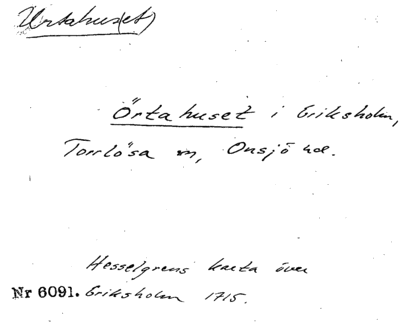 Urtahus(et)
Örtahuset i Eriksholm,
Torrlösa sn, Onsjö hd.
Hesselgrens karta över
Nr 6091. Eriksholm 1715.